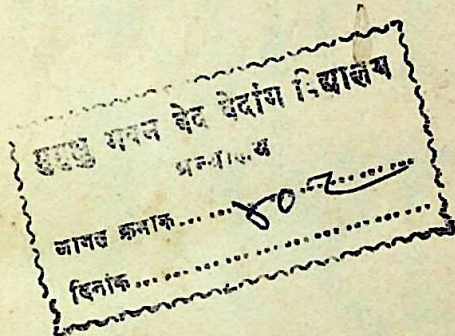 मुमुक्षु भवन वेद वेदांग विद्यालय
ग्रन्थालय
आगत क्रमाक......
दिनांक......